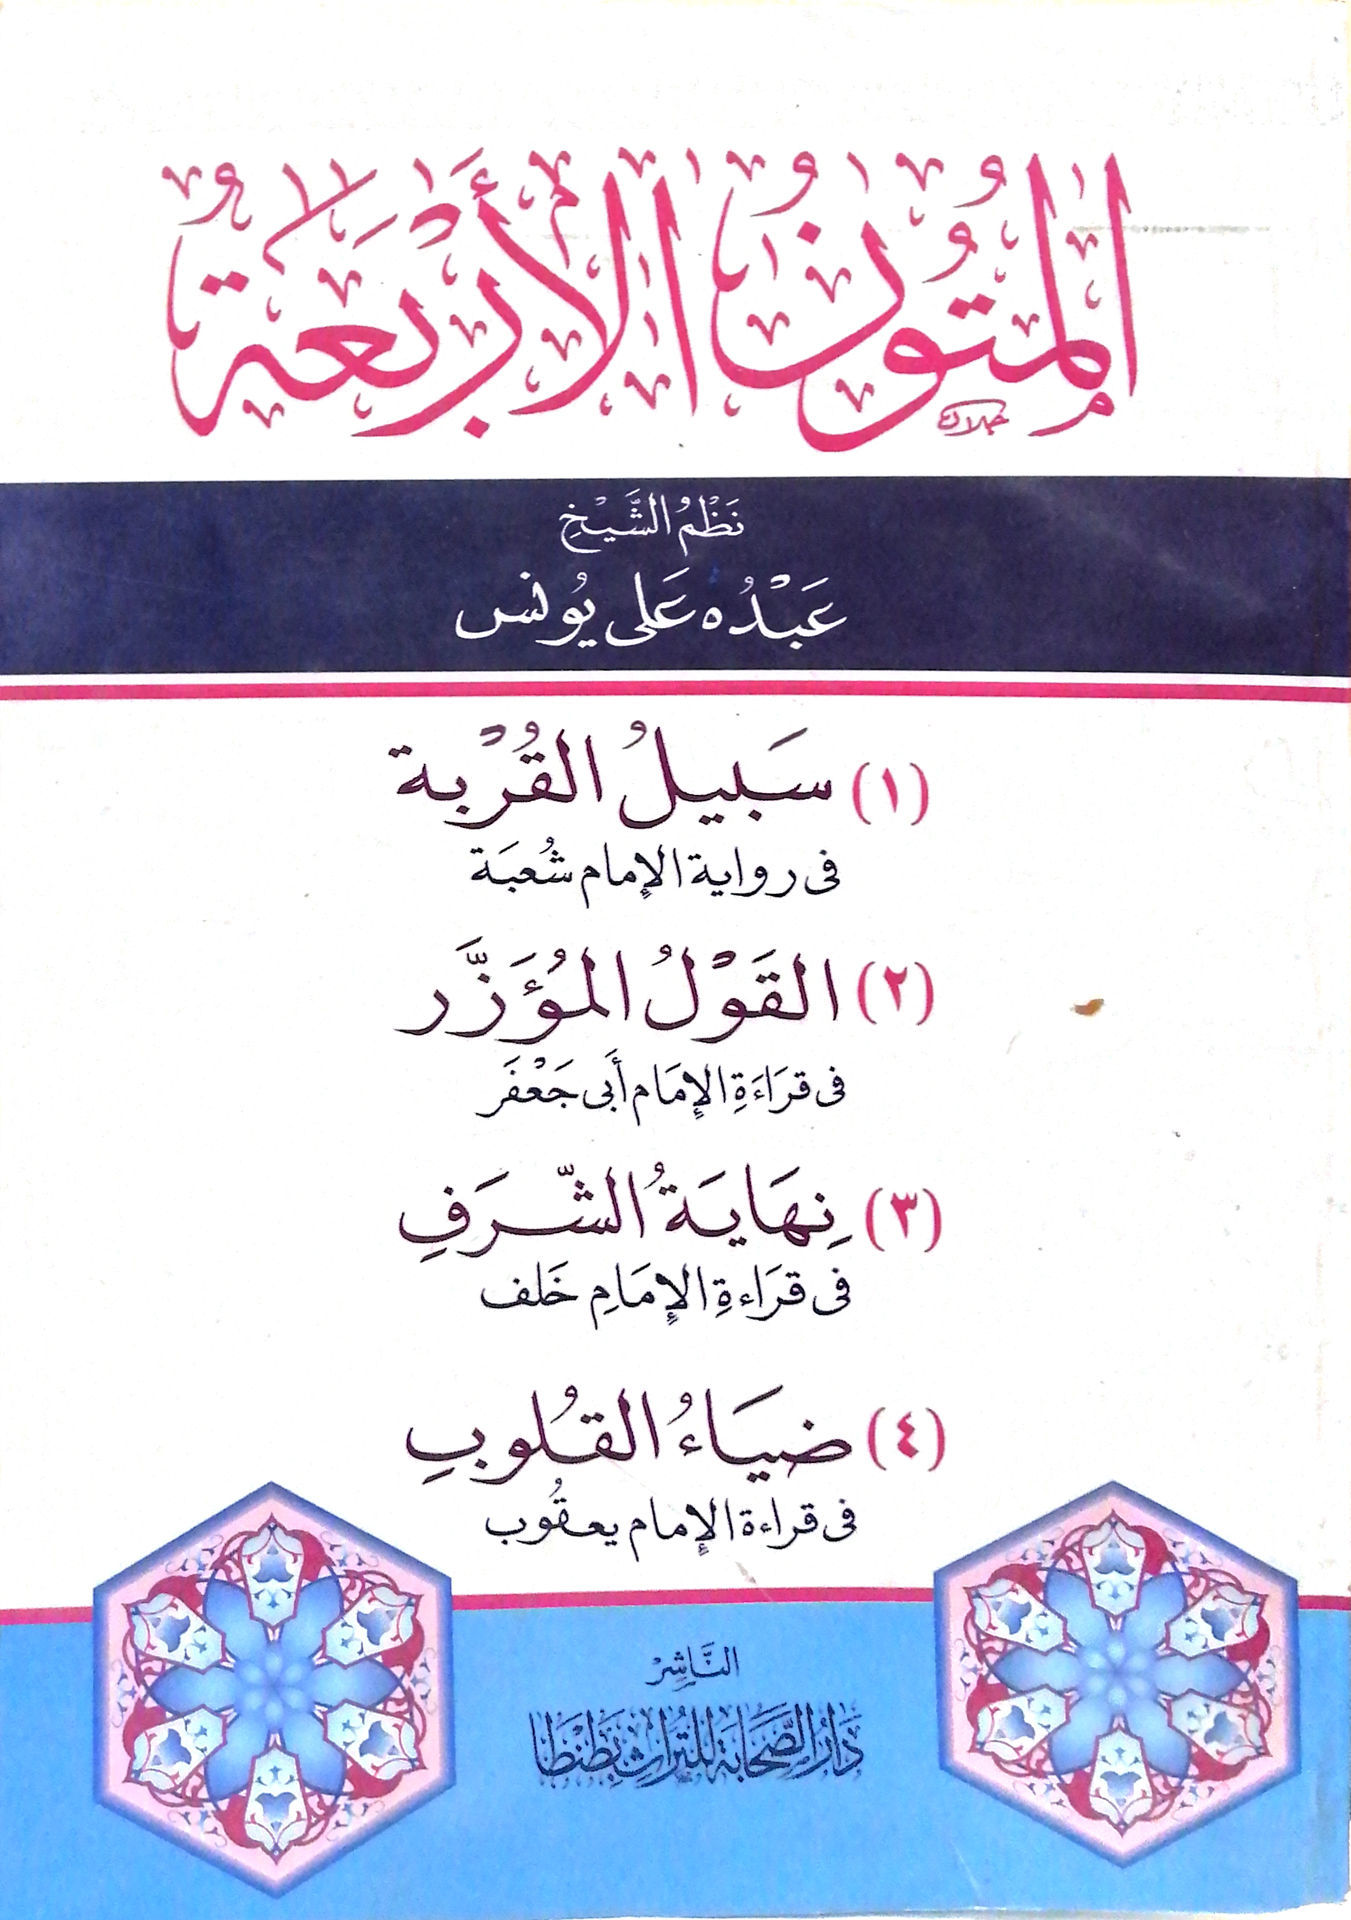 المُتُونُ الأَرْبَعَةُ
نَظْمُ الشَّيْخِ
عَبْدُه عَلى يُونس
(١) سَبِيلُ القُرْبة
فى رواية الإمام شُعبَة
(٢) القَوْلُ المُؤَزَّر
فى قرَاءَةِ الإمَام أَبى جَعْفَر
(٣) نِهَايَةُ الشّرَفِ
فى قرَاءةِ الإمَامِ خَلف
(٤) ضيَاءُ القُلوبِ
فى قراءة الإمام يعقُوب
النَّاشِرْ
دَارُ الصَّحَابَة للتُرَاثِ بَطَنْطَا